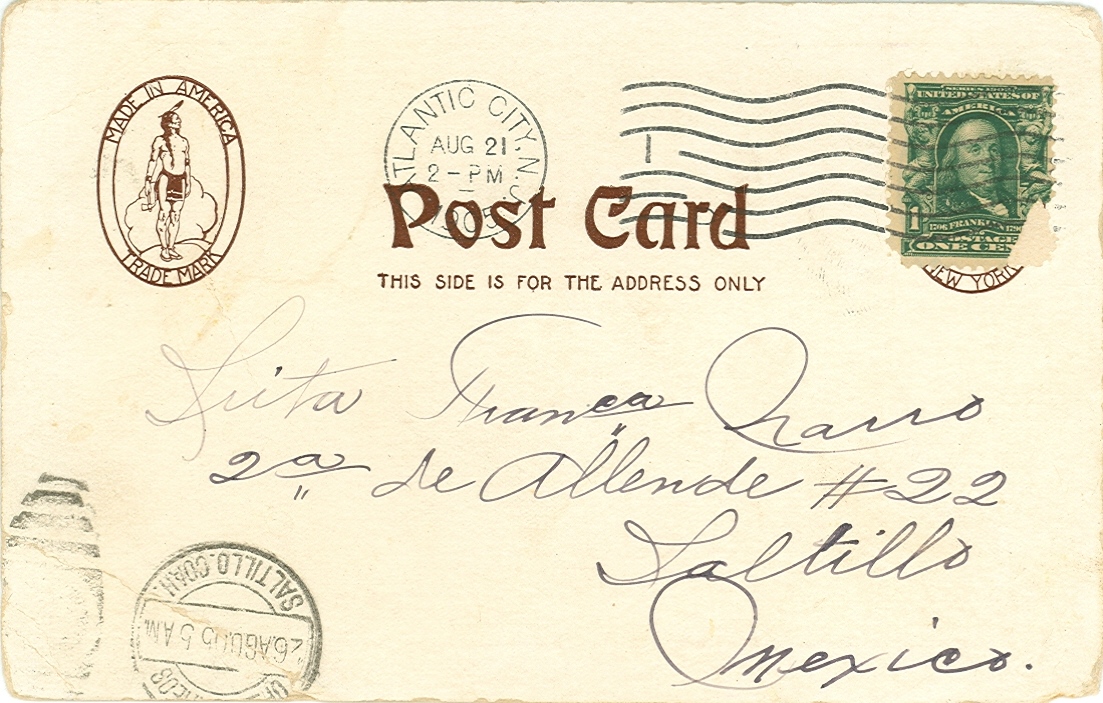 MADE IN AMERICA
TRADE MARK
ATLANTIC CITY, N.J.
AUG 21
2-PM
1905
1
SERIES 1902
UNITED STATES OF
AMERICA
1
1706 FRANKLIN 1790
POSTAGE
ONE CEN
NEW YORK
Post Card
THIS SIDE IS FOR THE ADDRESS ONLY
Srita Franca Narro
2a de Allende #22
Saltillo
Mexico.
SALTILLO. COAH.
26 AGU. 05 5 AM.